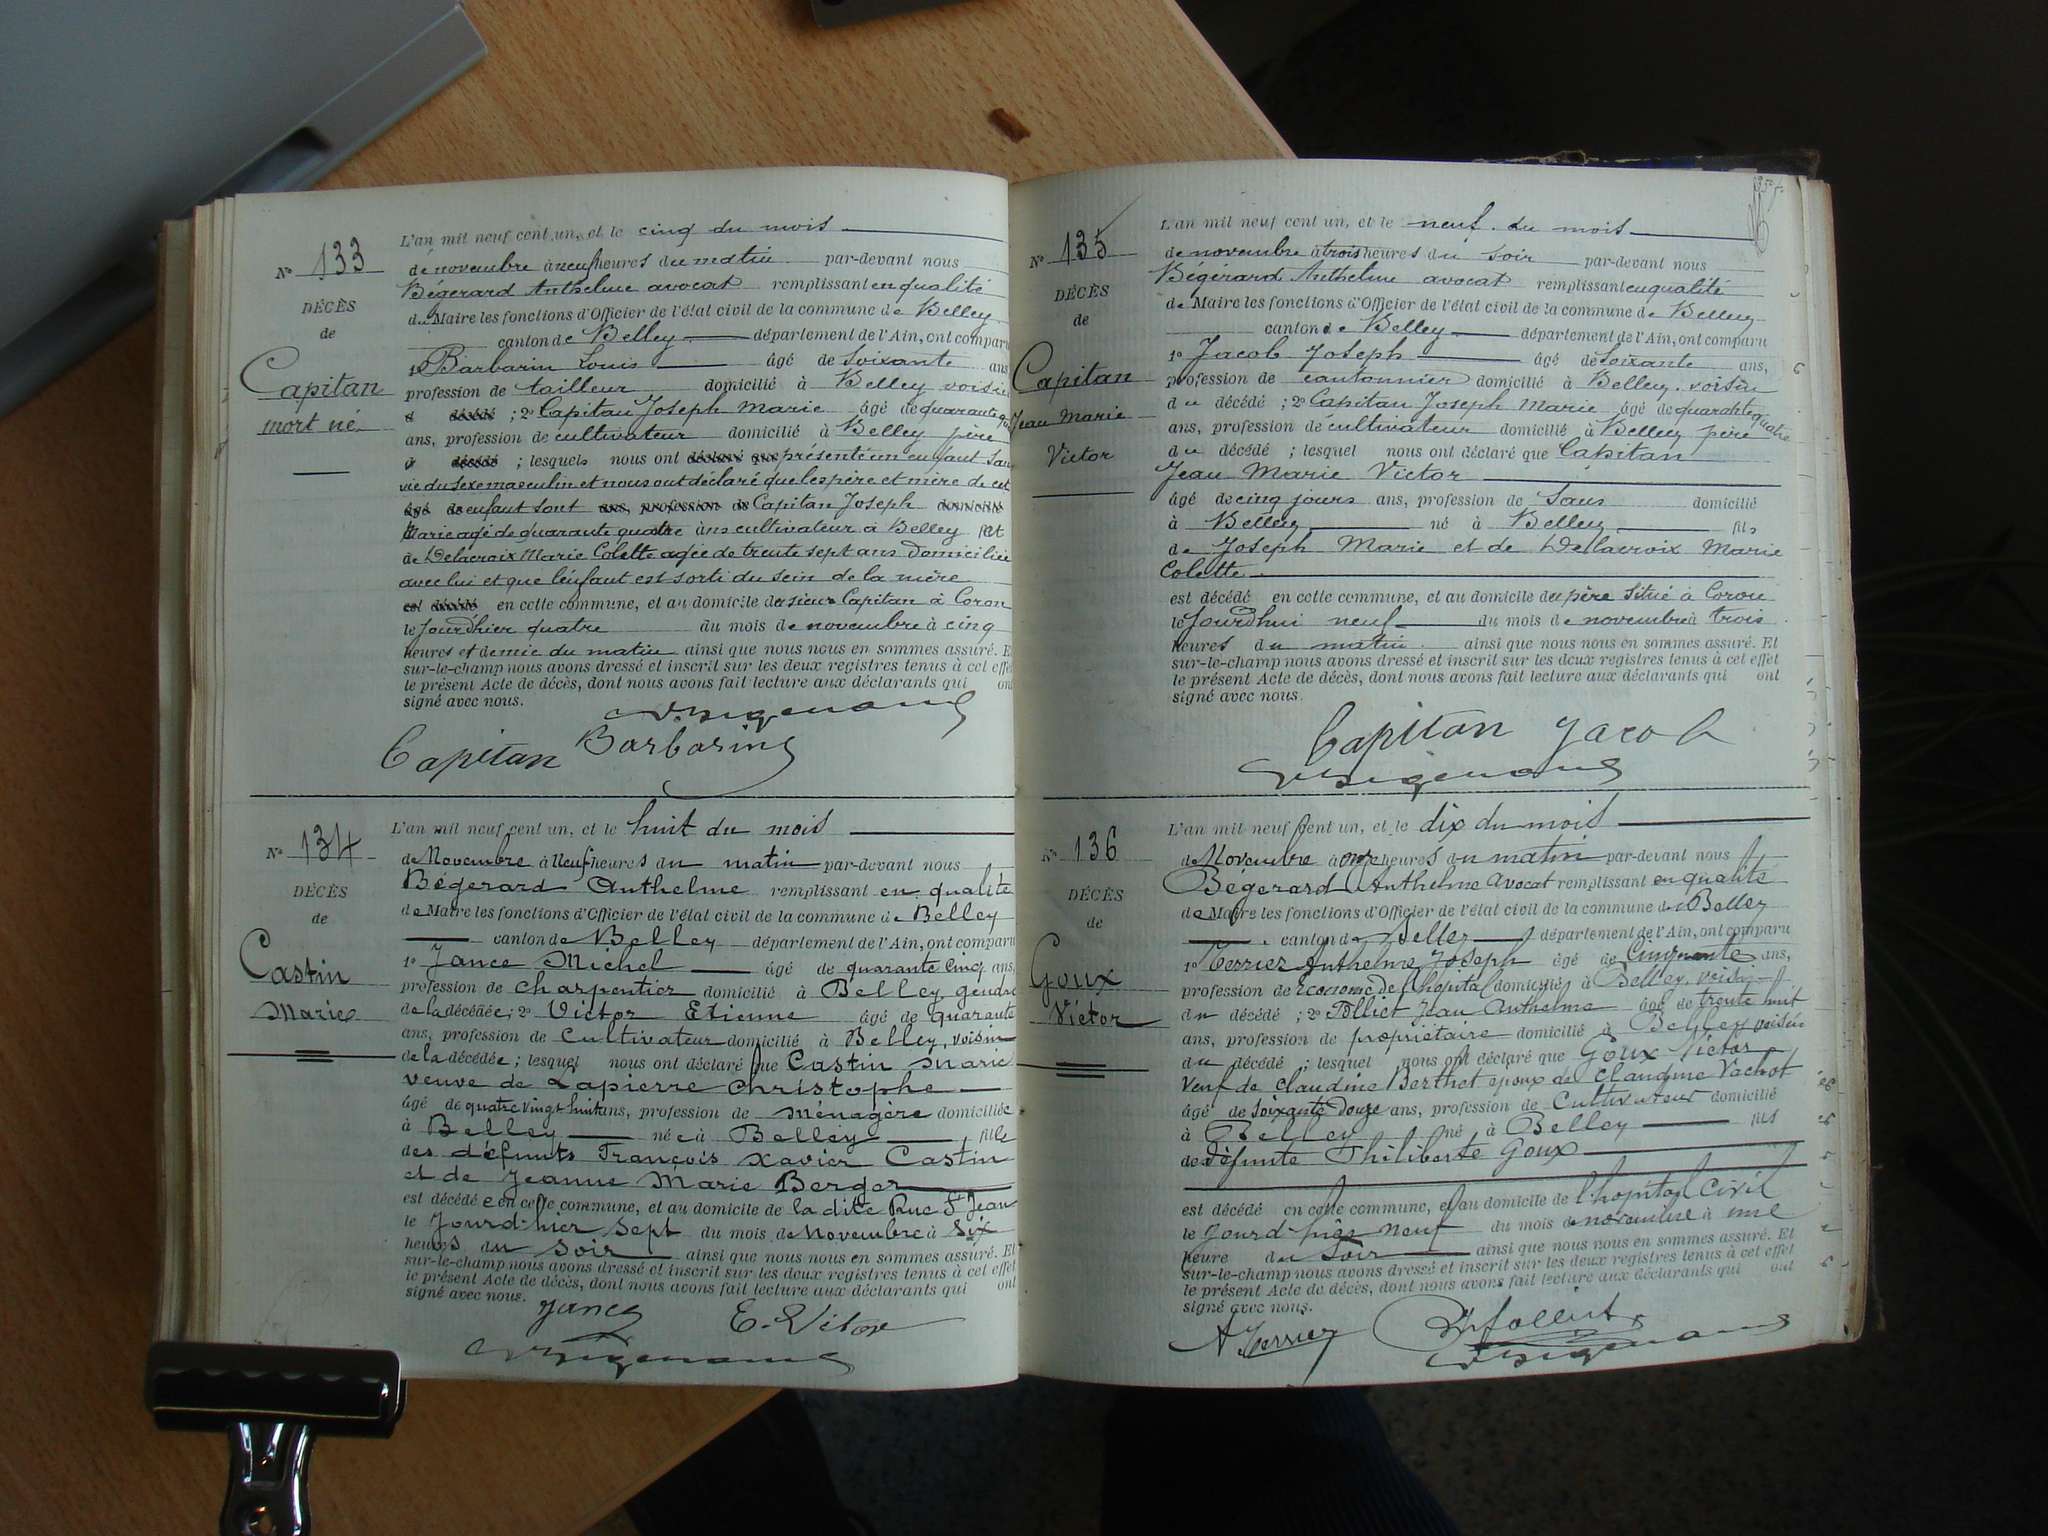 N° 133
DÉCÈS
de
Capitan
mort né
L'an mil neuf cent un, et le cinq du mois
de novembre à neuf heures du matin par-devant nous
Bégerard Anthelme avocat remplissant en qualité
de Maire les fonctions d'Officier de l'état civil de la commune de Belley
canton de Belley département de l'Ain, ont comparu
1° Barbarin Louis âgé de soixante ans
profession de tailleur domicilié à Belley voisin
décédé ; 2° Capitan Joseph Marie âgé de quarante
ans, profession de cultivateur domicilié à Belley père
décédé ; lesquels nous ont déclaré que présenté un enfant sans
vie du sexe masculin et nous ont déclaré que les père et mère de cet
âgé de enfant sont ans, profession de Capitan Joseph domicilié
Marie agé de quarante quatre ans cultivateur à Belley et
de Delacroix Marie Colette agée de trente sept ans domiciliée
avec lui et que l'enfant est sorti du sein de la mère
est décédé en cette commune, et au domicile du sieur Capitan à Coron
le jourd'hier quatre du mois de novembre à cinq
heures et demie du matin ainsi que nous nous en sommes assuré. Et
sur-le-champ nous avons dressé et inscrit sur les deux registres tenus à cet effet
le présent Acte de décès, dont nous avons fait lecture aux déclarants qui ont
signé avec nous.
Capitan Barbarin
N° 134
DÉCÈS
de
Castin
Marie
L'an mil neuf cent un, et le huit du mois
de Novembre à Neuf heures du matin par-devant nous
Bégerard Anthelme remplissant en qualité
de Maire les fonctions d'Officier de l'état civil de la commune de Belley
canton de Belley département de l'Ain, ont comparu
1° Jance Michel âgé de quarante cinq ans,
profession de charpentier domicilié à Belley, gendre
de la décédée ; 2° Victor Etienne âgé de quarante
ans, profession de Cultivateur domicilié à Belley, voisin
de la décédée ; lesquel nous ont déclaré que Castin Marie
veuve de Lapierre Christophe
âgé de quatre vingt huit ans, profession de Ménagère domiciliée
à Belley née à Belley fille
des défunts François Xavier Castin
et de Jeanne Marie Berger
est décédée en cette commune, et au domicile de la dite Rue St Jean
le Jourd-hier sept du mois de Novembre à six
heures du soir ainsi que nous nous en sommes assuré. Et
sur-le-champ nous avons dressé et inscrit sur les deux registres tenus à cet effet
le présent Acte de décès, dont nous avons fait lecture aux déclarants qui ont
signé avec nous.
Jance E. Vitor
N° 135
DÉCÈS
de
Capitan
Jean Marie
Victor
L'an mil neuf cent un, et le neuf du mois
de novembre à trois heures du soir par-devant nous
Bégerard Anthelme avocat remplissant en qualité
de Maire les fonctions d'Officier de l'état civil de la commune de Belley
canton de Belley département de l'Ain, ont comparu
1° Jacob Joseph âgé de soixante ans,
profession de cantonnier domicilié à Belley, voisin
du décédé ; 2° Capitan Joseph Marie âgé de quarante quatre
ans, profession de cultivateur domicilié à Belley père
du décédé ; lesquel nous ont déclaré que Capitan
Jean Marie Victor
âgé de cinq jours ans, profession de Sans domicilié
à Belley né à Belley fils
de Joseph Marie et de Delacroix Marie
Colette
est décédé en cette commune, et au domicile du père situé à Coron
le Jourd'hui neuf du mois de novembre à trois
heures du matin ainsi que nous nous en sommes assuré. Et
sur-le-champ nous avons dressé et inscrit sur les deux registres tenus à cet effet
le présent Acte de décès, dont nous avons fait lecture aux déclarants qui ont
signé avec nous.
Capitan Jacob
N° 136
DÉCÈS
de
Goux
Victor
L'an mil neuf cent un, et le dix du mois
de Novembre à onze heures du matin par-devant nous
Bégerard Anthelme Avocat remplissant en qualité
de Maire les fonctions d'Officier de l'état civil de la commune de Belley
canton de Belley département de l'Ain, ont comparu
1° Terrier Anthelme Joseph âgé de Cinquante ans,
profession de Econome de l'hopital domicilié à Belley, voisin
du décédé ; 2° Folliet Jean Anthelme âgé de trente huit
ans, profession de propriétaire domicilié à Belley voisin
du décédé ; lesquel nous ont déclaré que Goux Victor
Veuf de Claudine Berthet epoux de Claudine Vachot
âgé de soixante Douze ans, profession de Cultivateur domicilié
à Belley né à Belley fils
de défunte Philiberte Goux
est décédé en cette commune, et au domicile de l'hopital Civil
le Jourd-hier Neuf du mois de novembre à une
heure du Soir ainsi que nous nous en sommes assuré. Et
sur-le-champ nous avons dressé et inscrit sur les deux registres tenus à cet effet
le présent Acte de décès, dont nous avons fait lecture aux déclarants qui ont
signé avec nous.
A Terrier Folliet